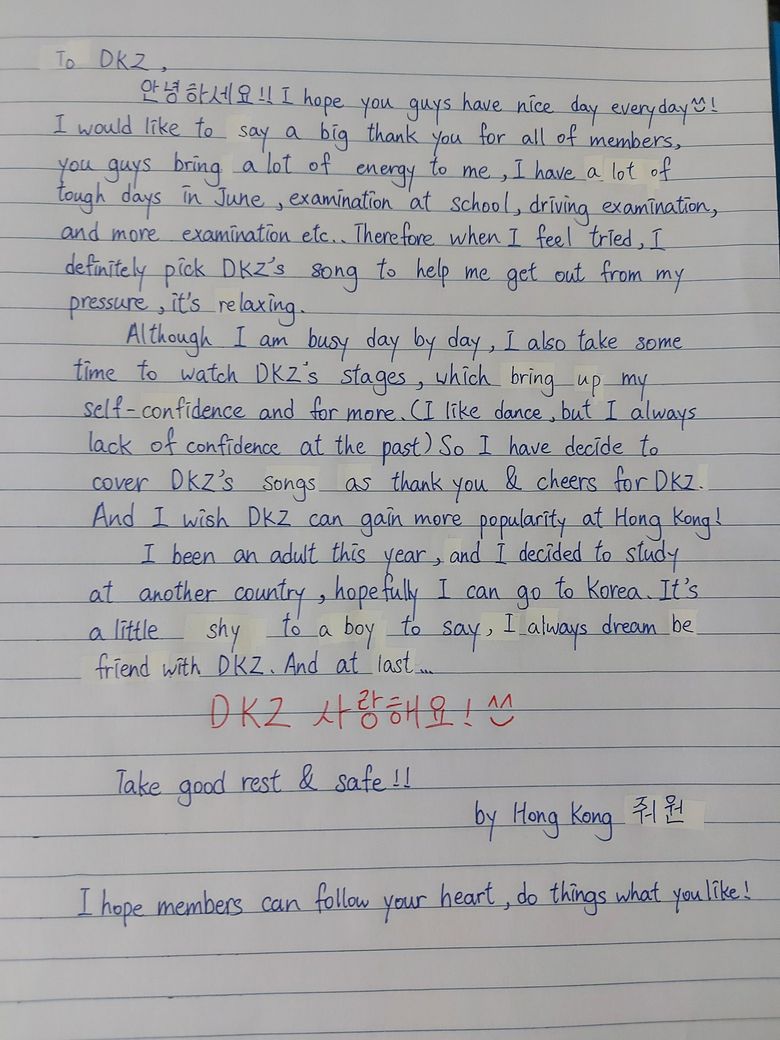 To DKZ,
안녕하세요!! I hope you guys have nice day everyday^^!
I would like to say a big thank you for all of members,
you guys bring a lot of energy to me, I have a lot of
tough days in June, examination at school, driving examination,
and more examination etc.. Therefore when I feel tried, I
definitely pick DKZ's song to help me get out from my
pressure, it's relaxing.
Although I am busy day by day, I also take some
time to watch DKZ's stages, which bring up my
self-confidence and for more. (I like dance, but I always
lack of confidence at the past) So I have decide to
cover DKZ's songs as thank you & cheers for DKZ.
And I wish DKZ can gain more popularity at Hong Kong!
I been an adult this year, and I decided to study
at another country, hopefully I can go to Korea. It's
a little shy to a boy to say, I always dream be
friend with DKZ. And at last...
DKZ 사랑해요! ^^
Take good rest & safe!!
by Hong Kong 쥐원
I hope members can follow your heart, do things what you like!